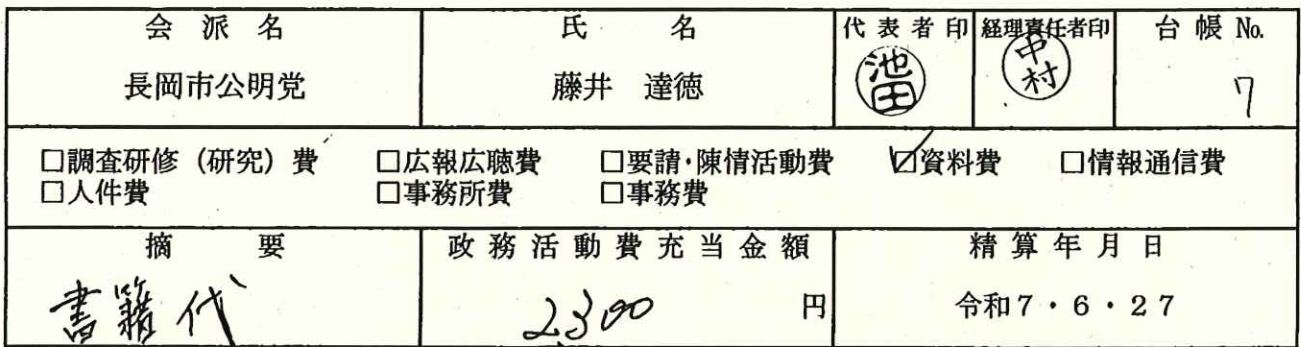 会派名 氏名 代表者印 経理責任者印 台帳No.
長岡市公明党 藤井 達徳 池田 中村 7
□調査研修（研究）費 □広報広聴費 □要請・陳情活動費 ☑資料費 □情報通信費
□人件費 □事務所費 □事務費
摘要 政務活動費充当金額 精算年月日
書籍代 2,300 円 令和7・6・27